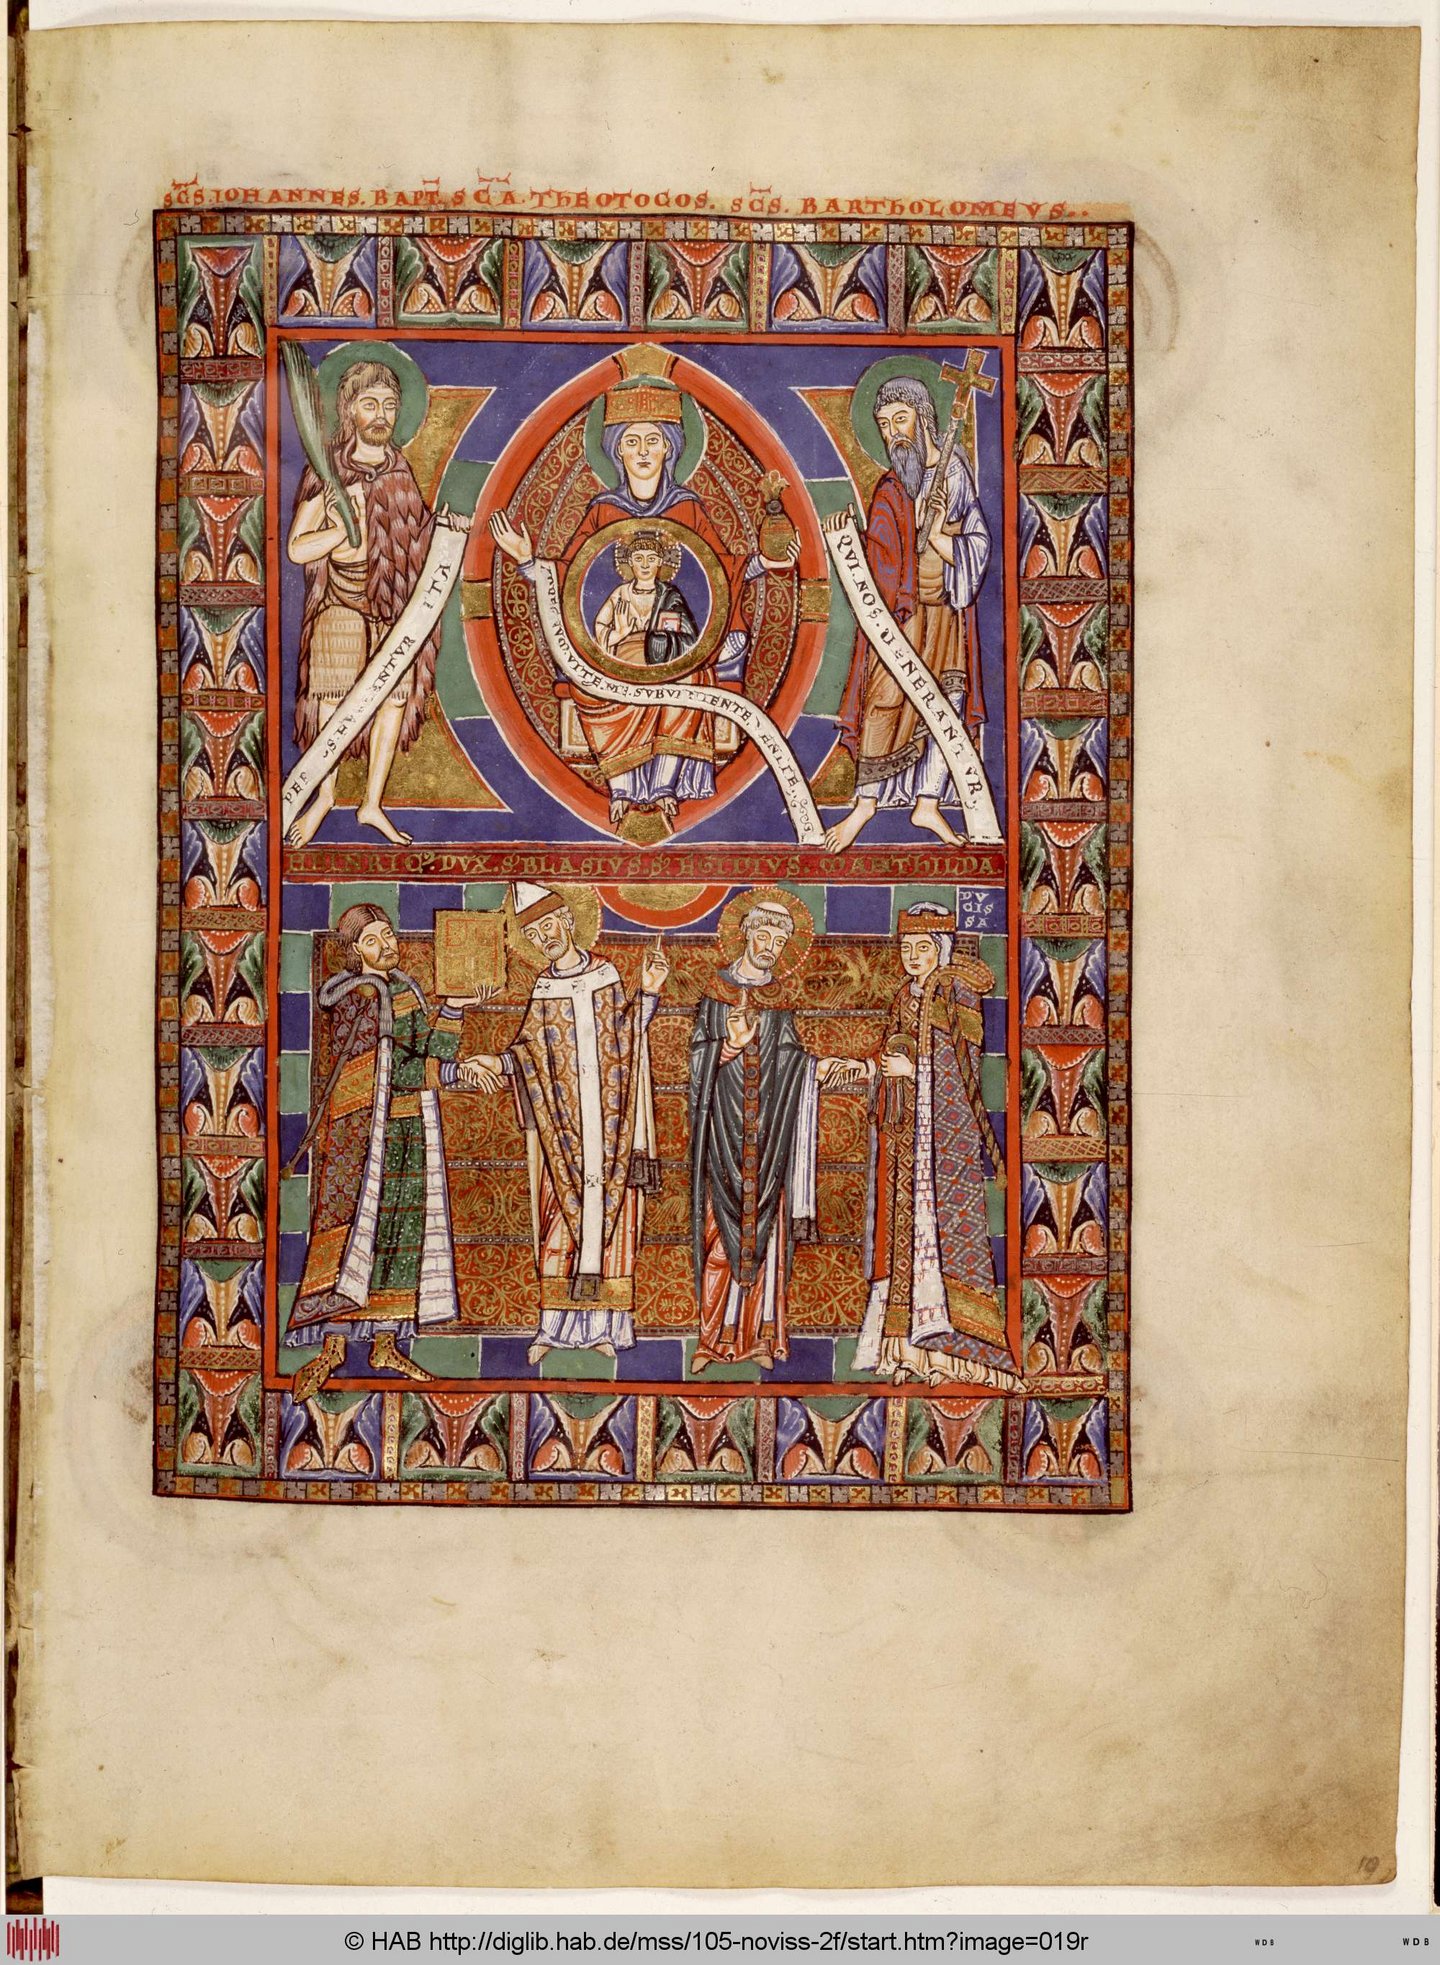 SC̅S. IOHANNES. BAPT̅. SC̅A. THEOTOCOS. SC̅S. BARTHOLOMEVS..
ITA
QVI. NOS. VENERANTVR,
AD. VITĀ. ME. SVBVENIENTE, VENITE,
HEINRICꝰ. DVX. S. BLASIVS. S. EGIDIVS. MARTHILDA
DV
CIS
SA.
19
© HAB http://diglib.hab.de/mss/105-noviss-2f/start.htm?image=019r
WDB
WDB